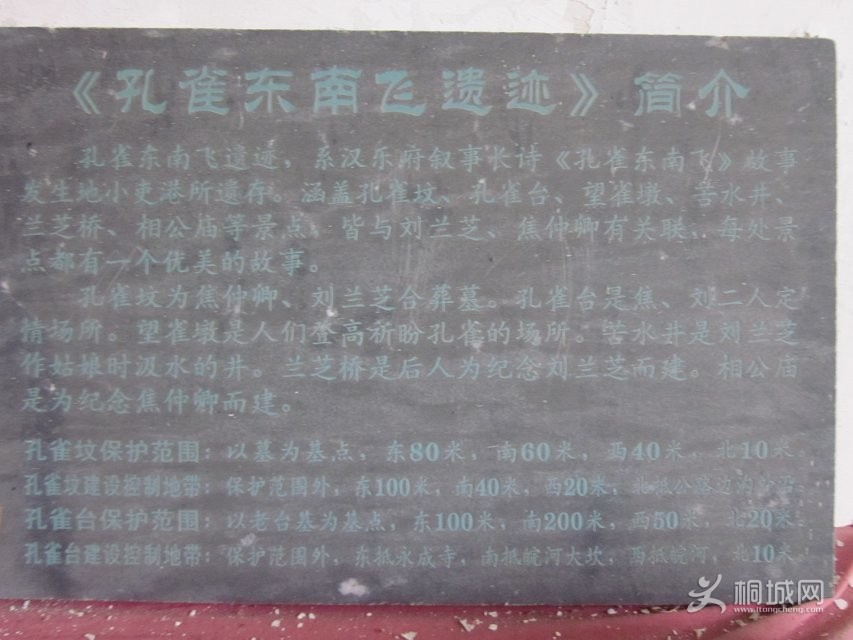 《孔雀东南飞遗迹》简介
孔雀东南飞遗迹，系汉乐府叙事长诗《孔雀东南飞》故事
发生地小吏港所遗存。涵盖孔雀坟、孔雀台、望雀墩、苦水井、
兰芝桥、相公庙等景点，皆与刘兰芝、焦仲卿有关联，每处景
点都有一个优美的故事。
孔雀坟为焦仲卿、刘兰芝合葬墓。孔雀台是焦、刘二人定
情场所。望雀墩是人们登高祈盼孔雀的场所。苦水井是刘兰芝
作姑娘时汲水的井。兰芝桥是后人为纪念刘兰芝而建。相公庙
是为纪念焦仲卿而建。
孔雀坟保护范围：以墓为基点，东80米，南60米，西40米，北10米
孔雀坟建设控制地带：保护范围外，东100米，南40米，西20米，北抵公路边
孔雀台保护范围：以老台基为基点，东100米，南200米，西50米，北20米
孔雀台建设控制地带：保护范围外，东抵永成寺，南抵皖河大坎，西抵皖河，北10米
桐城网
www.itongcheng.com